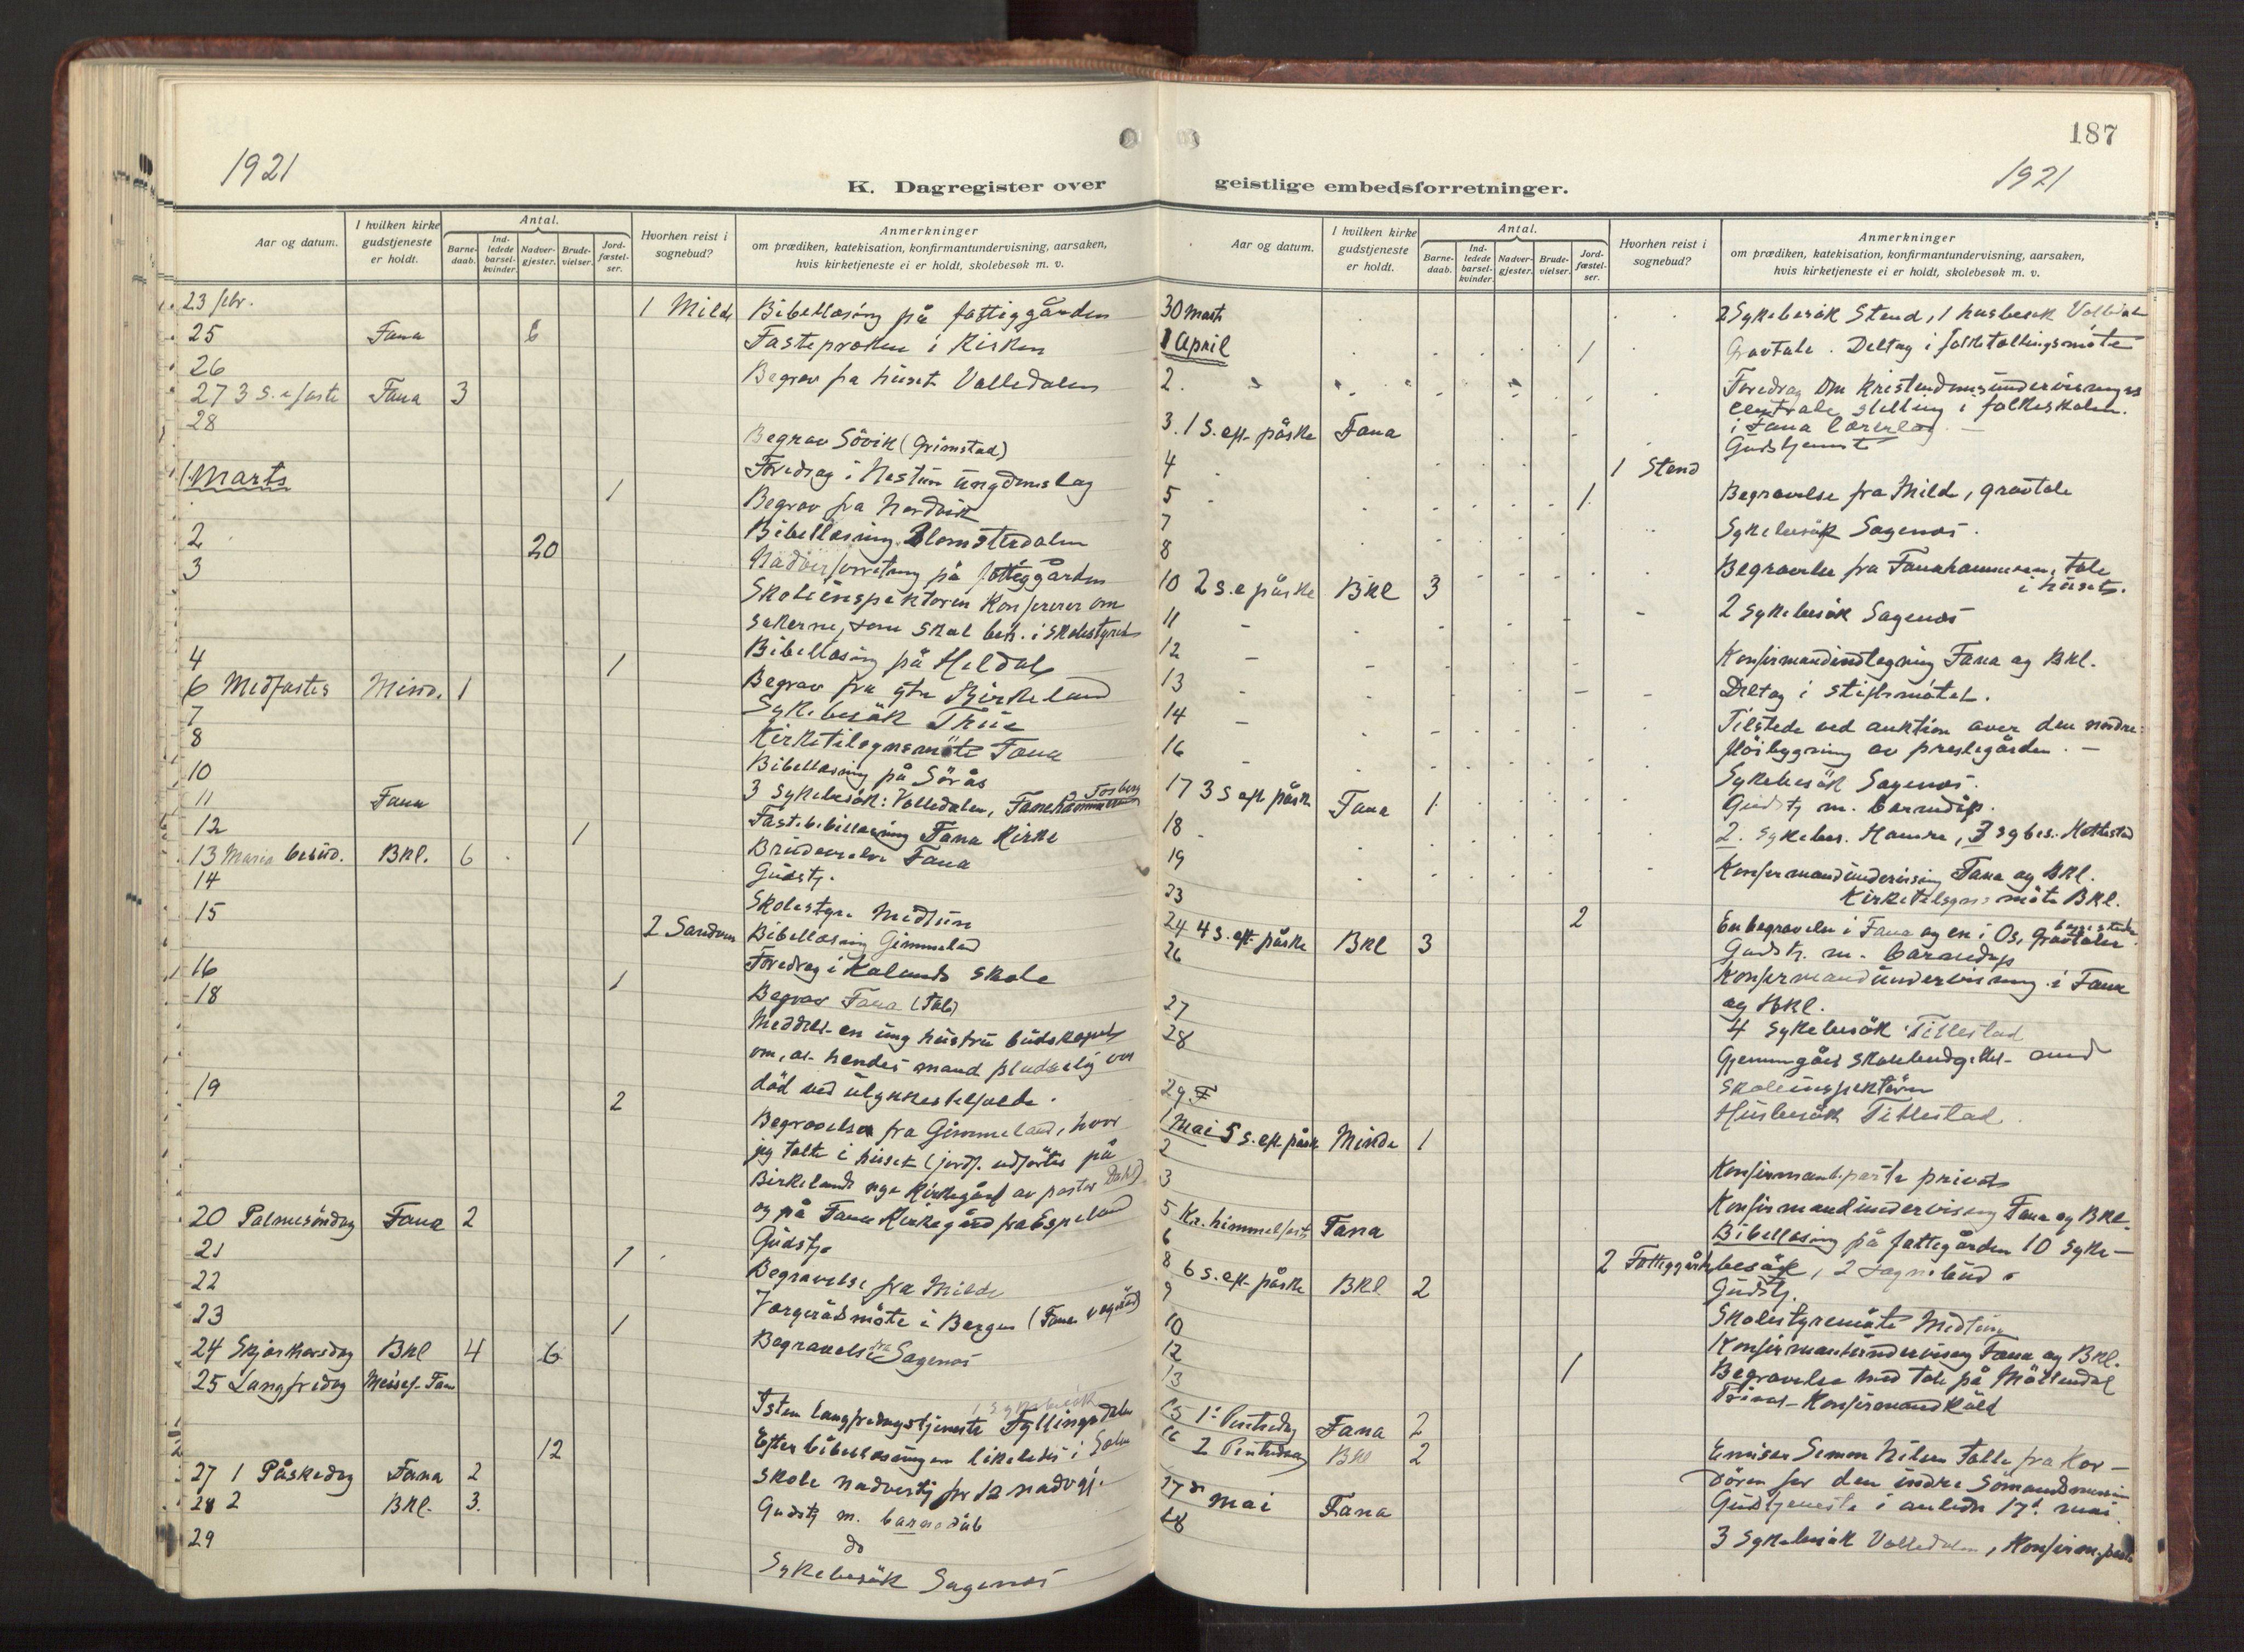 187
1921
1921
K. Dagregister over geistlige embedsforretninger.
Aar og datum.
I hvilken kirke gudstjeneste er holdt.
Antal.
Barne-daab.
Ind-ledede barsel-kvinder.
Nadver-gjester.
Brude-vielser.
Jord-fæstel-ser.
Hvorhen reist i sognebud?
Anmerkninger
om prædiken, katekisation, konfirmantundervisning, aarsaken,
hvis kirketjeneste ei er holdt, skolebesøk m. v.
23 febr. 1 Milde Bibellæsning på fattiggården
25 Fana 6 Fastepræken i Kirken
26 Begrav fra huset Valledalen
27 3 S. i faste Fana 3
28 Begrav Sövik (Grimstad)
Foredrag i Nestun ungdomslag
1. Marts 1 Begrav fra Nordvik
Bibellæsning Blomsterdalen
2 20 Nadverforretning på fatteggården
3 Skoleinspektoren konfererer om
sakerne, som skal beh. i skolestyret
Bibellæsing på Heldal
4 1 Begrav fra ytre Birkeland
6 Midfaste Minde 1
7 Sykebesök Thue
8 Kirketilsynsmöte Fana
10 Bibellæsning på Sörås
3 sykebesök: Valledalen, Fanehammeren
11 Fana Fastebibellæsning Fana Kirke
12 1 Brudevielse Fana
13 Maria besud. BKl. 6 Gudstj.
14 Skolestyre Midtun
15 2 Sandven Bibellæsning Gimmeland
Foredrag i Kalands skole
16 1 Begrav Fana (tale)
18 Meddelt en ung hustru budskapet
om, at hendes mand pludselig var
död ved ulykkestilfælde.
19 2 Begravelse fra Gimmeland, hvor
jeg talte i huset (jordf. udförtes på
Birkelands nye Kirkegård av pastor Dahl)
og på Fana Kirkegård fra Espeland
20 Palmesöndag Fana 2 Gudstj.
21 1 Begravelse fra Milde
22 Værgerådsmöte i Bergen
23 1 Begravelse fra Sagenæs
24 Skjærtorsdag BKl 4 6
25 Langfredag
1 sykebesök
Isten langfredagstjeneste Fyllingsdalen
12 Efter bibellæsningen likeledes i
skole nadvertj for 12 nadvgj.
27 1 Påskedag Fana 2 Gudstj m. barnedåb
28 2 BKl. 3. do
29 Sykebesök Sagenæs
Aar og datum.
I hvilken kirke gudstjeneste er holdt.
Antal.
Barne-daab.
Ind-ledede barsel-kvinder.
Nadver-gjester.
Brude-vielser.
Jord-fæstel-ser.
Hvorhen reist i sognebud?
Anmerkninger
om prædiken, katekisation, konfirmantundervisning, aarsaken,
hvis kirketjeneste ei er holdt, skolebesøk m. v.
30 marts 2 Sykebesök Stend, 1 husbesök
1 April 1 Gravtale. Deltag i folketellingsmöte
2. Foredrag om kristendomsundervisningens
centrale stilling i folkeskolen.
i Fana lærerlag. —
3. 1 S. eft. påske Fana Gudstjeneste
4 1 Stend
5 1. Begravelse fra Milde, gravtale
7 Sykebesök Sagenæs.
8 Begravelse fra Fanahammeren, tale
i huset.
10 2 s. e påske BKl 3
11 2 sykebesök Sagenæs
12 Konfirmandindtegning Fana og BKl.
13 Deltog i stiftsmötet.
14 Tilstede ved auktion over den nordre
flöibygning av prestegården. —
16 Sykebesök Sagenæs.
17 3 S eft påske Fana 1 Gudstj m. barnedåp.
18 2. sykebes. Hamre, 3 sybes.
19 Konfirmandundervisning Fana og BKl.
Kirketilsynsmöte BKl.
23 2 En begravelse i Fana og en i Os, gravtaler begge steder
24 4 s. eft. påske BKl 3 Gudstj. m. barnedåp
26 Konfirmandundervisning i Fana
og BKl.
27 4 sykebesök Titlestad
28 Gjennemgået skolebudgettet med
skoleinspektören
29 Husbesök Titlestad.
1 Mai 5 s. eft påske Minde 1
2
3
Konfirmandundervisning Fana og BKl.
5 Kr. himmelfart Fana
6 2 Fattiggården Bibellæsing på fattegården 10 syke-
besök, 2 sognebud
8 6 s. eft påske BKl 2 Gudstj.
9 Skolestyremöte Midtun
10 Konfirmantundervisning Fana og BKl.
12 1 Begravelse med tale på Möllendal
13
15 1ste Pintsedag Fana 2
16 2 Pintsedag BKl 2 Emissær Simon Nilsen talte fra kor-
dören for den indre Sömandsmission
17de mai Fana Gudstjeneste i anledn 17de mai.
18 3 Sykebesök Valledalen,